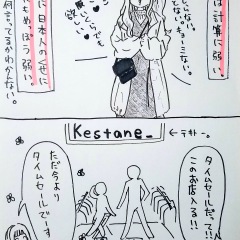 は計算に弱い
に日本人のくせに
もめっぽう弱い。
何言ってるかわかんない。
Kestane_
←テキトー。
タイムセールだって!!
このお店入る!!
ただ今より
タイムセールでーす